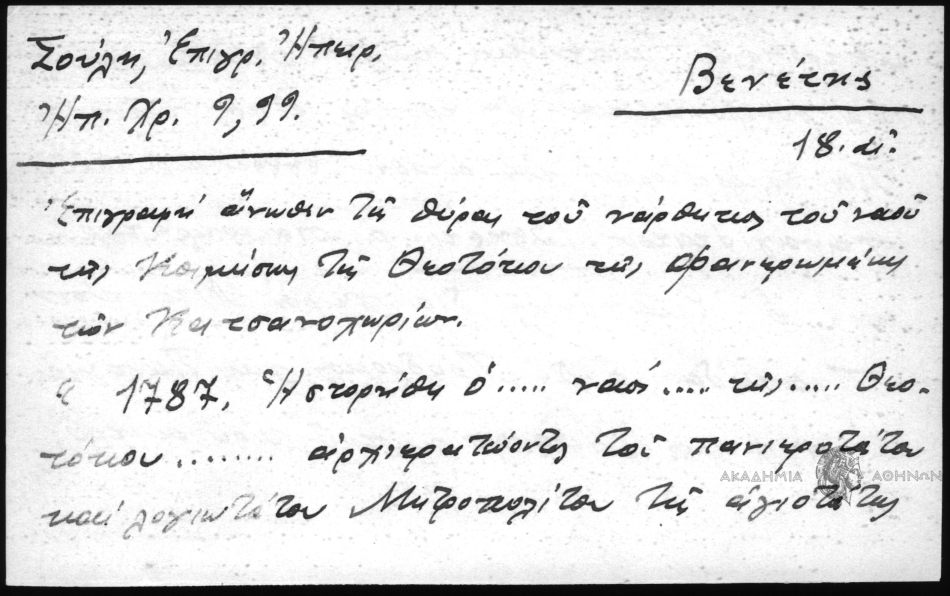 Σούλη, Ἐπιγρ. Ἠπειρ.
Ἠπ. Χρ. 9, 99.
Βενέτης
18. αἰ.
Ἐπιγραφή ἄνωθεν τῆς θύρας τοῦ νάρθηκος τοῦ ναοῦ
τῆς Κοιμήσεως τῆς Θεοτόκου τῆς Φανερωμένης
τῶν Κατσανοχωρίων.
1787, Ἡστορήθη ὁ ..... ναός .... τῆς ..... Θεο-
τόκου ........ ἀρχιερατεύοντος τοῦ πανιεροτάτου
καί λογιωτάτου Μητροπολίτου τῆς ἁγιοτάτης
ΑΚΑΔΗΜΙΑ ΑΘΗΝΩΝ